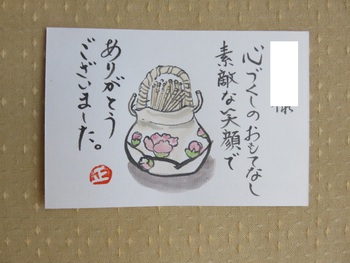 様
心づくしのおもてなし
素敵な笑顔で
ありがとう
ございました。
正